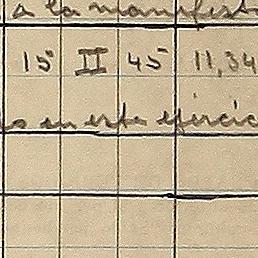 a la manifest
15 II 45 11,34
s en este ejercic